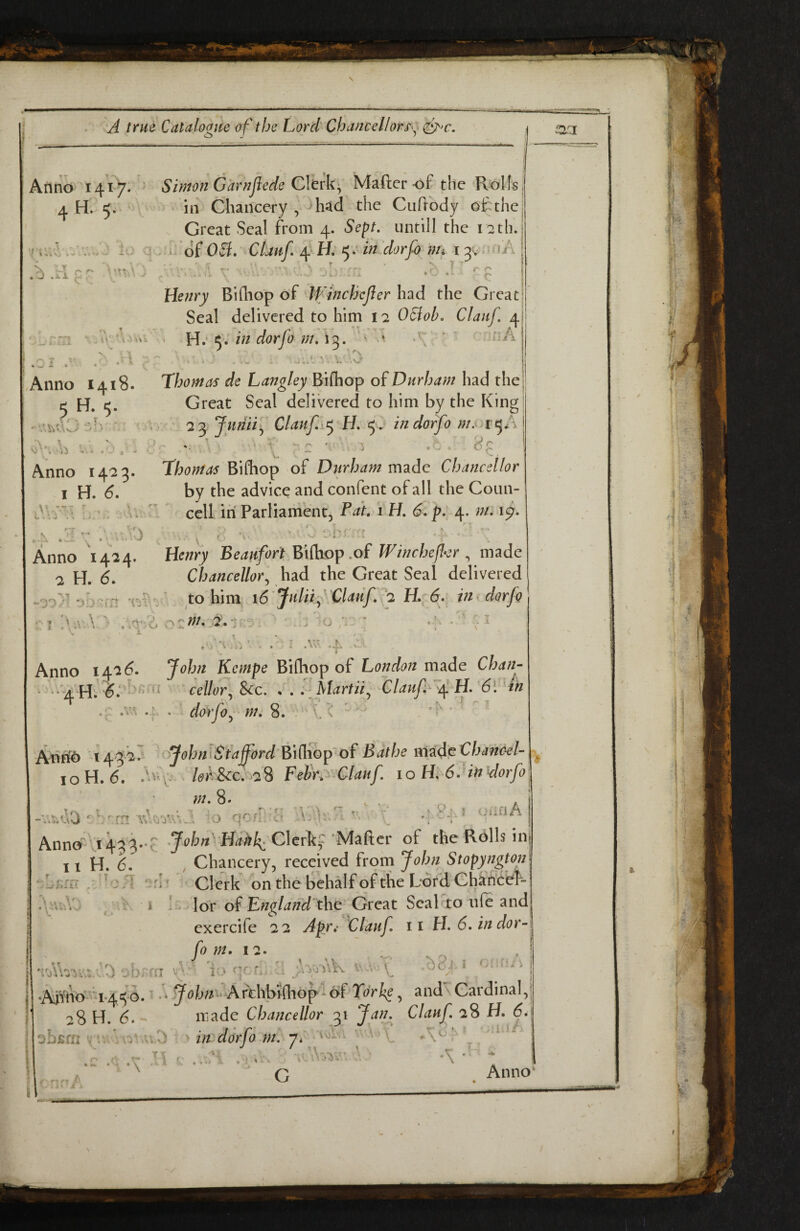 A true Catalogue of the Lord Chancellors, &c. 21
Anno 1417. Simon Garnſtede Clerk, Maſter of the Rolls
4 H. 5. in Chancery, had the Cuſtody of the
Great Seal from 4. Sept. untill the 12th.
of Oct. Clauſ. 4 H. 5. in dorſo m. 13.
Henry Biſhop of Wincheſter had the Great
Seal delivered to him 12 Octob. Clauſ. 4
H. 5. in dorſo m. 13.
Anno 1418. Thomas de Langley Biſhop of Durham had the
5 H. 5. Great Seal delivered to him by the King
23 Junii, Clauſ. 5 H. 5. in dorſo m. 15.
Anno 1423. Thomas Biſhop of Durham made Chancellor
1 H. 6. by the advice and conſent of all the Coun-
cell in Parliament, Pat. 1 H. 6. p. 4. m. 19.
Anno 1424. Henry Beaufort Biſhop of Wincheſter, made
2 H. 6. Chancellor, had the Great Seal delivered
to him 16 Julii, Clauſ. 2 H. 6. in dorſo
m. 2.
Anno 1426. John Kempe Biſhop of London made Chan-
4 H. 6. cellor, &c. . . . Martii, Clauſ. 4 H. 6. in
dorſo, m. 8.
Anno 1432. John Stafford Biſhop of Bathe made Chancel-
10 H. 6. lor &c. 28 Febr. Clauſ. 10 H. 6. in dorſo
m. 8.
Anno 1433. John Hank Clerk, Maſter of the Rolls in
11 H. 6. Chancery, received from John Stopyngton
Clerk on the behalf of the Lord Chancel-
lor of England the Great Seal to uſe and
exerciſe 22 Apr. Clauſ. 11 H. 6. in dor-
ſo m. 12.
Anno 1450. John Archbiſhop of Yorke, and Cardinal,
28 H. 6. made Chancellor 31 Jan. Clauſ. 28 H. 6.
in dorſo m. 7.
G Anno